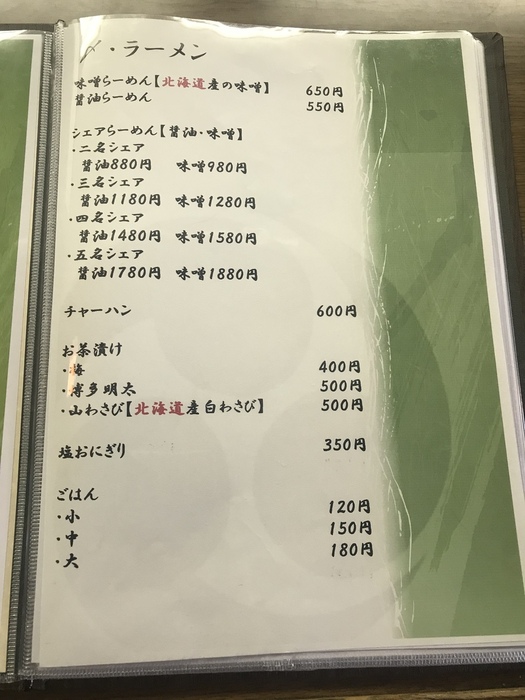 〆・ラーメン
味噌らーめん【北海道産の味噌】 650円
醤油らーめん 550円
シェアらーめん【醤油・味噌】
・二名シェア
醤油880円 味噌980円
・三名シェア
醤油1180円 味噌1280円
・四名シェア
醤油1480円 味噌1580円
・五名シェア
醤油1780円 味噌1880円
チャーハン 600円
お茶漬け
・梅 400円
・博多明太 500円
・山わさび【北海道産白わさび】 500円
塩おにぎり 350円
ごはん
・小 120円
・中 150円
・大 180円